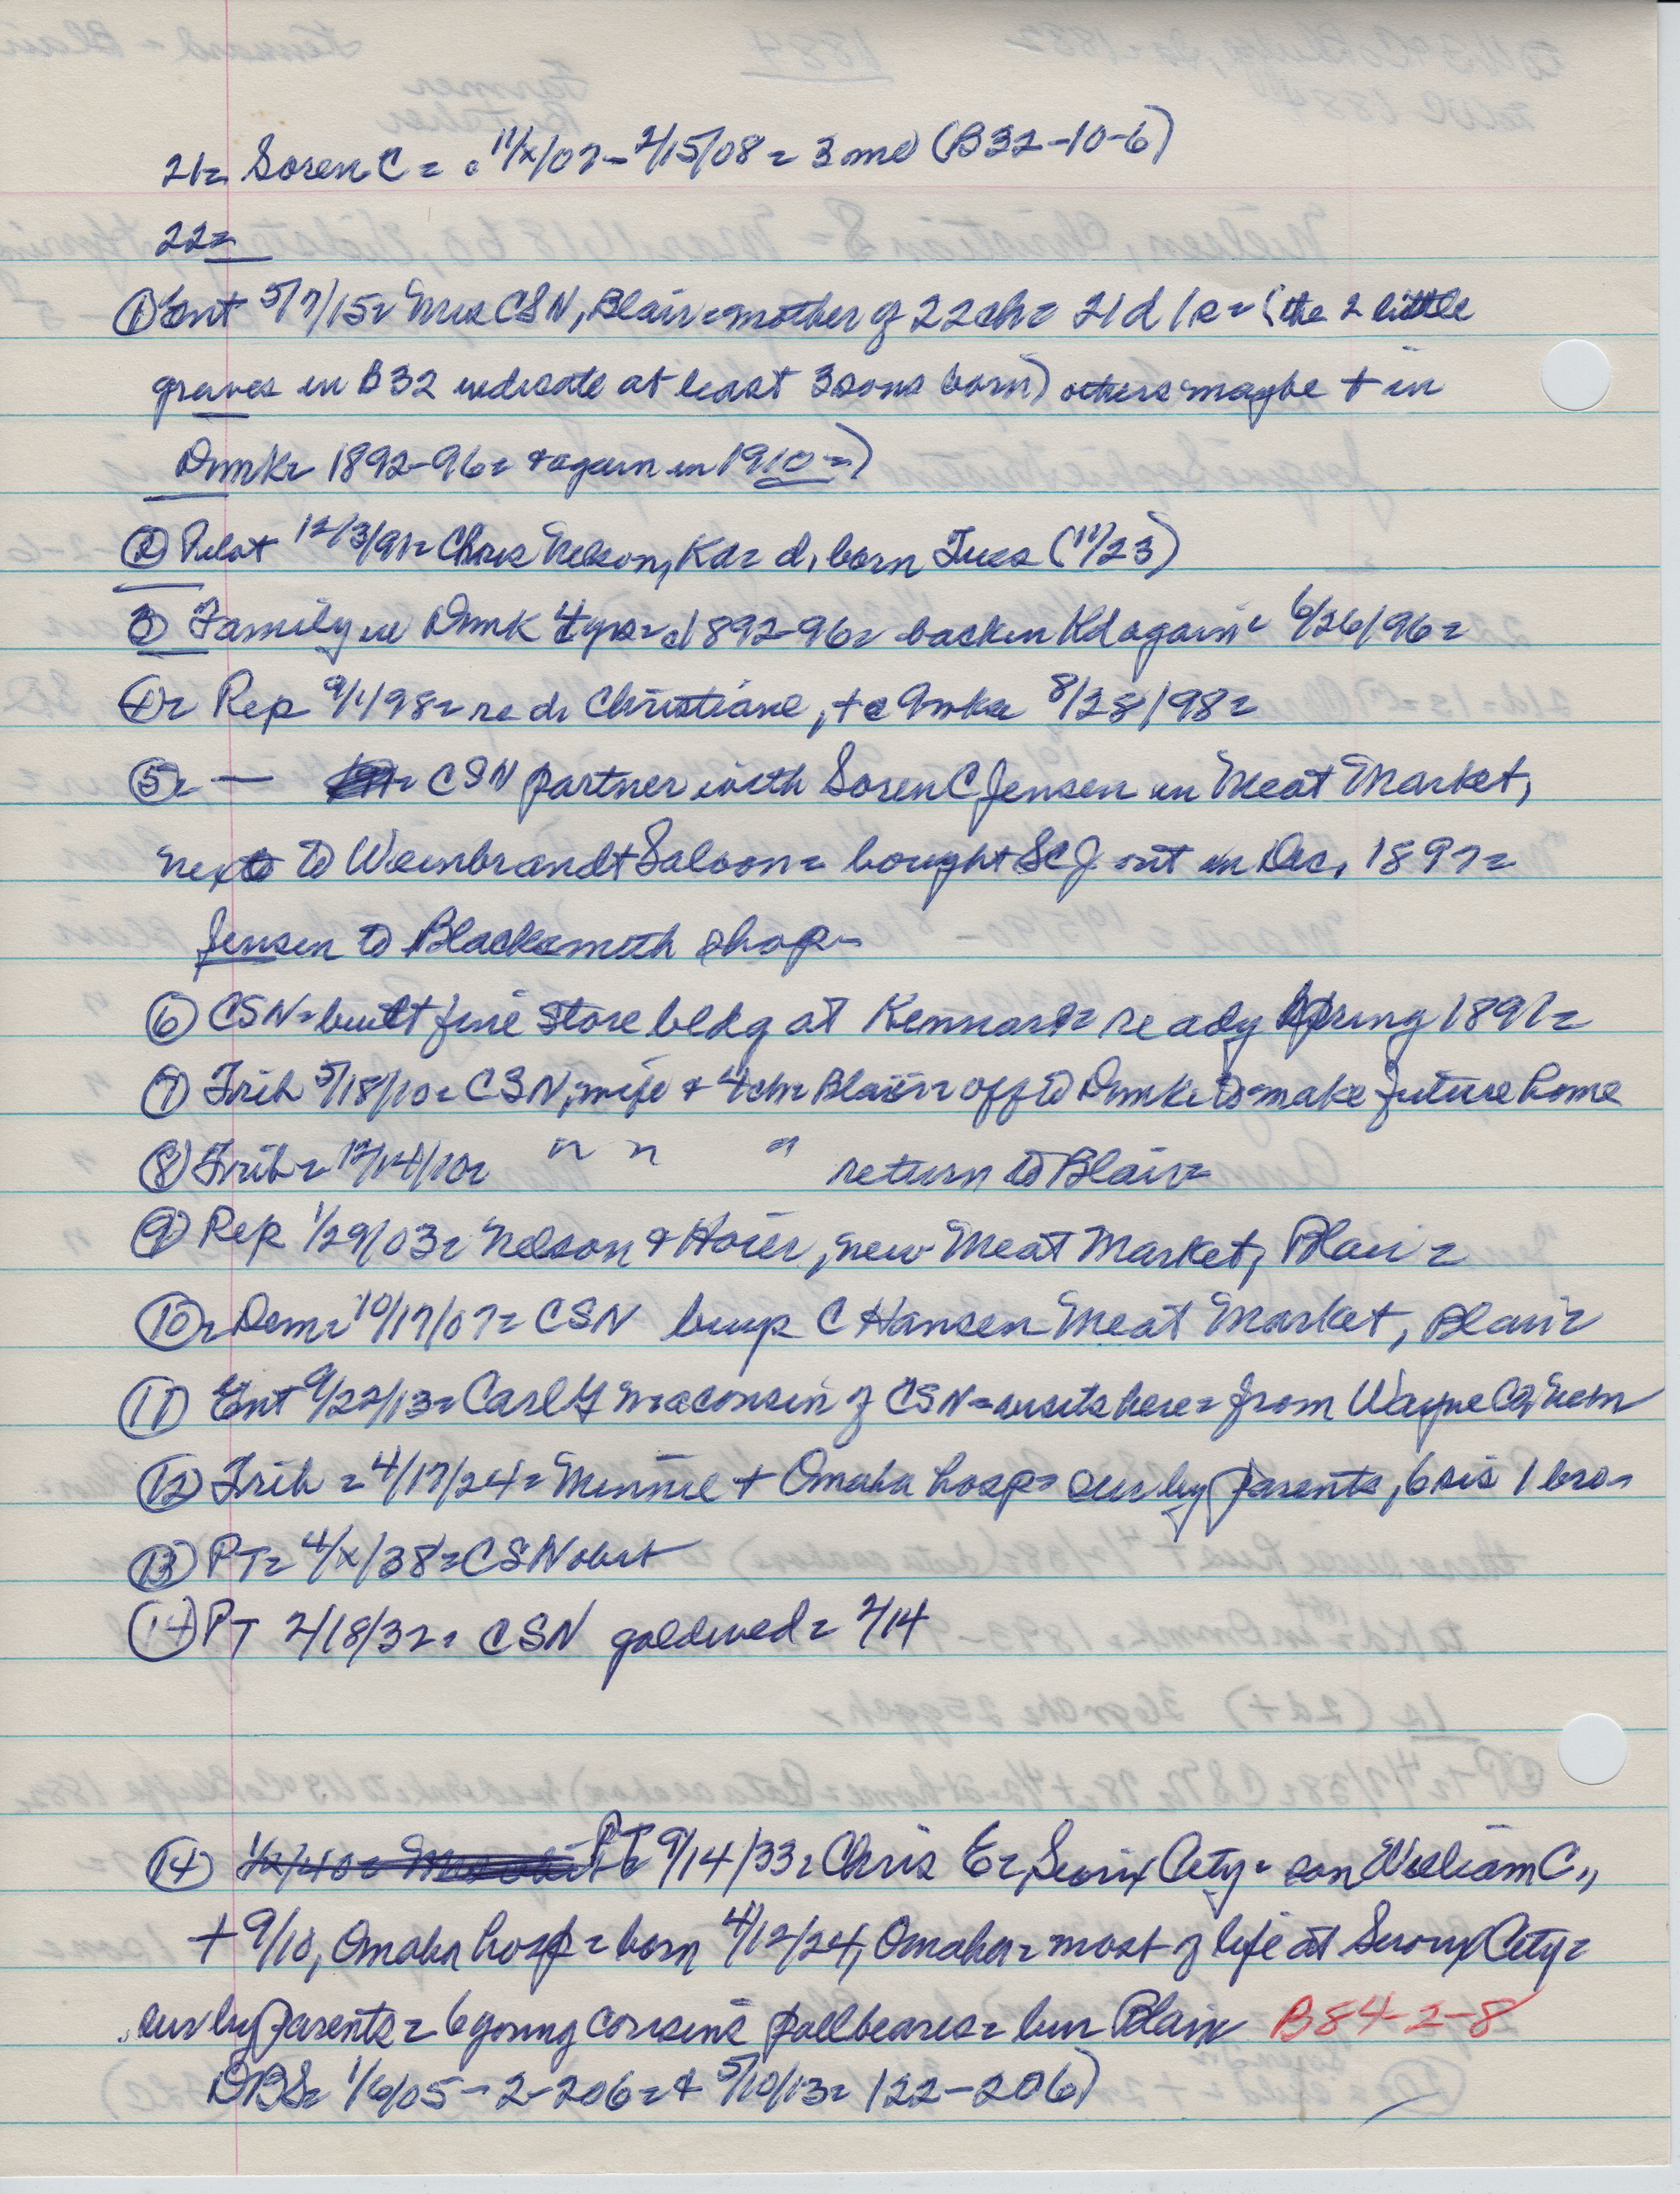 21= Soren C = c 11/x/07 - 2/15/08 = 3 mo (B32-10-6)
22=
① Ent 5/7/15= Mrs CSN, Blair = mother of 22 ch = 21 d 1 s = (the 2 little
graves in B32 indicate at least 3 sons born) others maybe + in
Dnmk= 1892-96= & again in 1910=)
② Pilot 12/3/91= Chris Nelson, Kd= d, born Tues (11/23)
③ Family in Dnmk 4 yrs= 1892-96= back in Kd again= 6/26/96=
④= Rep 9/1/98= re d. Christiane, + c Omka 8/28/98=
⑤= — CSN partner with Soren C Jensen in Meat Market,
next to Weinbrandt Saloon= bought SCJ out in Dec, 1897=
Jensen to Blacksmith shop-
⑥ CSN= built fine store bldg at Kennard= ready Spring 1891=
⑦ Trib 5/18/10= CSN, wife & 4 ch= Blair= off to Dnmk= to make future home
⑧ Trib= 12/14/10= " " " return to Blair=
⑨ Rep 1/29/03= Nelson & Hoier, new Meat Market, Blair=
⑩= Dem= 10/17/07= CSN buys C Hansen Meat Market, Blair=
⑪ Ent 9/22/13= Carl = a cousin of CSN= visits here= from Wayne Co, Nebr
⑫ Trib = 4/17/24= Minnie + Omaha hosp= sur by parents, 6 sis 1 bro-
⑬ PT= 4/x/38= CSN obit
⑭ PT 2/18/32= CSN gold wed= 2/14
⑭ PT= 9/14/33= Chris E=, Sioux City= son William C.,
+ 9/10, Omaha hosp= born 4/12/24, Omaha= most of life at Sioux City=
sur by parents= 6 young cousins pallbearers= bur Blair B84-2-8
DBS= 1/6/05-2-206= & 5/10/13= 122-206)